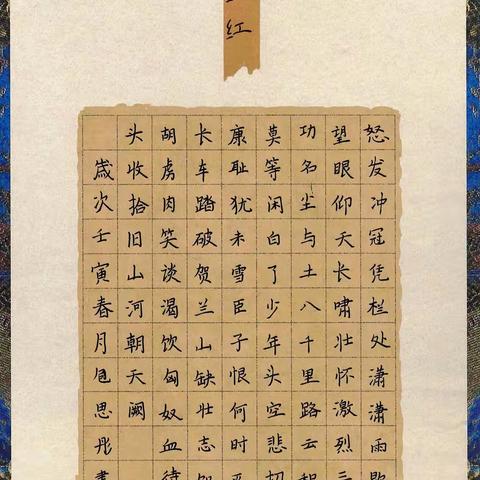 红
怒发冲冠凭栏处潇潇雨歇
望眼仰天长啸壮怀激烈三
功名尘与土八千里路云和
莫等闲白了少年头空悲切
康耻犹未雪臣子恨何时
长车踏破贺兰山缺壮志
胡虏肉笑谈渴饮匈奴血待
头收拾旧山河朝天阙
歳次壬寅春月思彤書